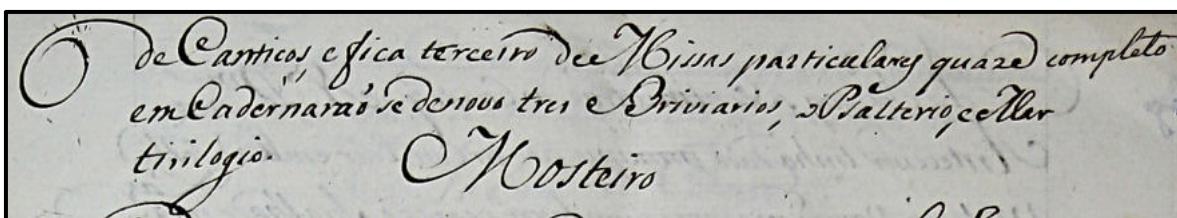 de Canticos, e fica terceiro de Missas particulares quaze completo
em Cadernaraõ se de novo tres Briviarios, Psalterio, e Mar
tirilogio.
Mosteiro